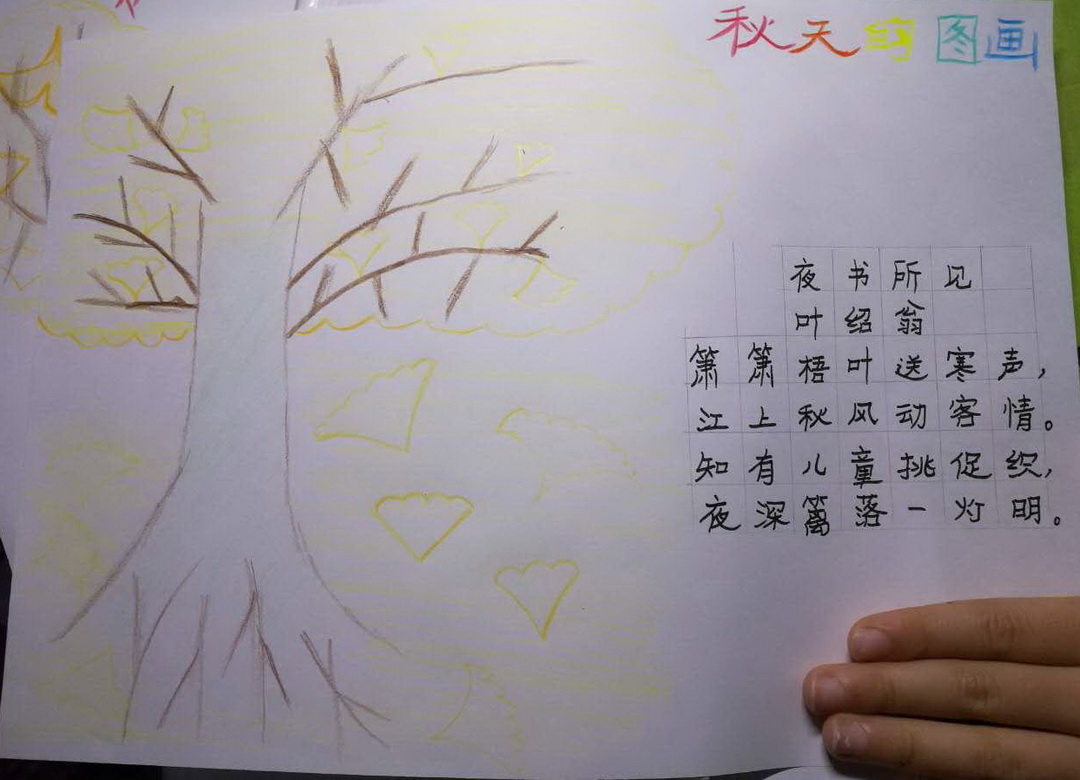 秋天的图画
夜书所见
叶绍翁
箫箫梧叶送寒声，
江上秋风动客情。
知有儿童挑促织，
夜深篱落一灯明。